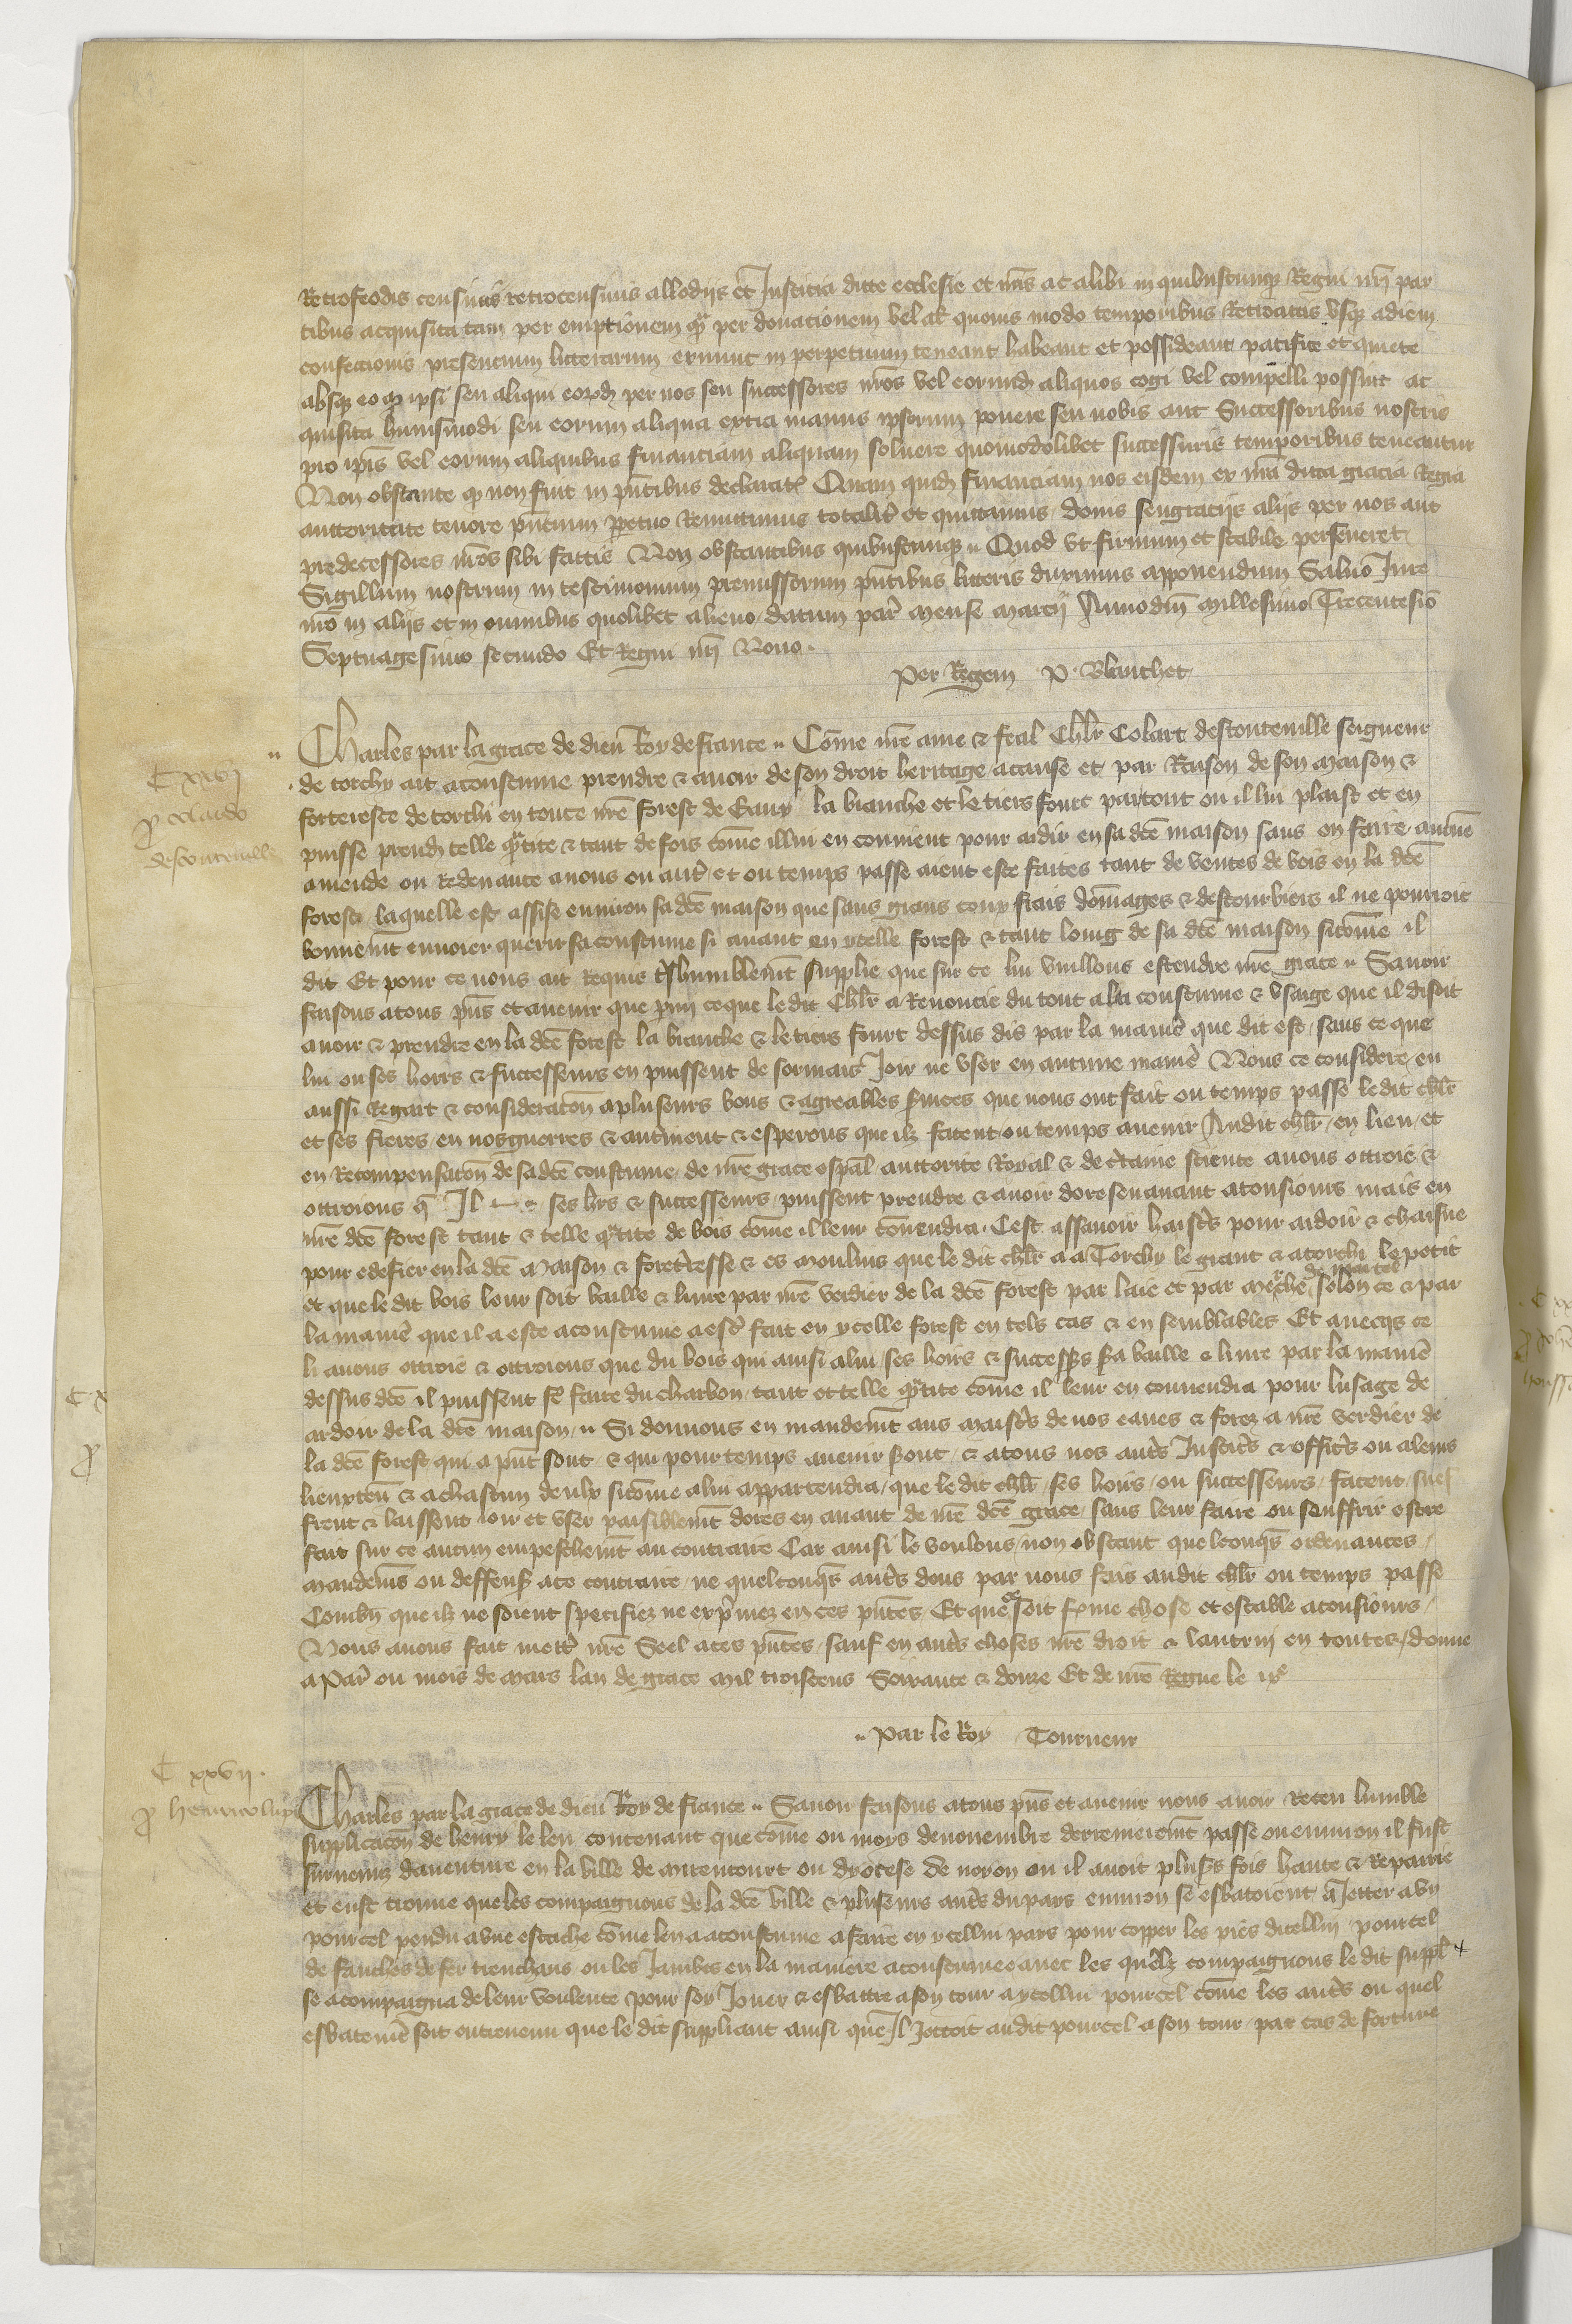 Retrofeodis censiuis retrocensiuis allodijs et Justicia dicte ecclesie et nr̄is ac alibi in quibuscunqꝫ Regni nr̄i par
tibus acquisita tam per emptionem qͣm per donacionem vel alr̄ quouis modo temporibus Retroactis vsqꝫ ad diem
confectionis presencium litterarum ex nunc in perpetuum teneant habeant et possideant pacifice et quiete
absqꝫ eo qꝫ ipsi seu aliqui eorūdꝫ per nos seu successores nr̄os vel eorundꝫ aliquos cogi vel compelli possint ac
quisita huiusmodi seu eorum aliqua extra manus ipsorum ponere seu nobis aut Successoribus nostris
pro ip̄is vel eorum aliquibus financiam aliquam soluere quomodolibet successuris temporibus teneantur
Non obstante qꝫ non sint in pn̄tibus declarat Quam quidꝫ financiam nos eisdem ex nr̄a dicta gracia Regia
auctoritate tenore pn̄cium ꝑpetuo Remittimus totalit̄ et quittamus donis seu graciis alijs per nos aut
predecessores nr̄os sibi factis Non obstantibus quibuscunqꝫ Quod vt firmum et stabile perseueret
Sigillum nostrum in testimonium premissorum pn̄tibus litteris duximus apponendum Saluo Jure
nr̄o in alijs et in omnibus quolibet alieno datum par̄ mense marcij Anno dn̄i millesimo Trecentesīo
Septuagesimo secundo Et Regni nr̄i Nono.
Per Regem P. Blanchet
C xxvj
ꝓ colardo
destouteuille
Charles par la grace de dieu Roy de france Cōme nr̄e ame & feal chl̄r Colart destouteuille seigneur
de torchy ait acoustume prendre & auoir de son droit heritage a cause et par Raison de son maison &
forteresce de torchi en toute nr̄e forest de Eauy la branche et le tiers fourc partout ou il lui plaist et en
puisse prendꝫ telle qͣntite & tant de fois cōme il lui en conuient pour ardir en sa dc̄e maison sans en faire aucūe
amende ou Redeuance a nous ou aut̄ et ou temps passe aient este faites tant de ventes de bois en la dc̄e
forest laquelle est assise enuiron sa dc̄e maison que sans grans coux frais dōmages & destourbiers il ne pourroit
bonnemt̄ enuoier querir sa coustume si auant en ycelle forest & tant loing de sa dc̄e maison sicōme il
dit Et pour ce nous ait Requis tr̄shumblemt̄ supplie que sur ce lui vueillons estendre nr̄e grace Sauoir
faisons a tous pn̄s et auenir que pmi ce que le dit chl̄r a Renoncie du tout a la coustume & vsaige que il disoit
auoir & prendre en la dc̄e forest la branche & le tiers fourc dessus dis par la maniē que dit est sans ce que
lui ou ses hoirs & successeurs en puissent desormais Joir ne vser en aucune maniē Nous ce considere en
aussi Regart & consideracōn a pluseurs bons & agreables ẜuices que nous ont fait ou temps passe le dit chl̄r
et ses freres en nos guerres & autrement & esperons que ilz facent ou temps auenir Audit chl̄r en lieu et
en Recompensacōn de sa dc̄e coustume de nr̄e grace esp̄al auctorite Royal & de c̄taine science auons ottroie &
ottroions q̄ Il & ses hrs & successeurs puissent prendre & auoir doresenauant a tousiours mais en
nr̄e dc̄e forest tant & telle qͣntite de bois cōme il leur cōuendra Cest assauoir haistr̄s pour ardoir & chaisne
pour edefier en la dc̄e maison & foret̄esse & es moulins que le dit chl̄r a a Torchy le grant & a torchi le petit
et que le dit bois leur soit baille & liure par nr̄e verdier de la dc̄e forest par laie et par merche de martel selon ce & par
la maniē que il a este acoustume a estr̄ fait en ycelle forest en tels cas & en semblables Et auecqs ce
li auons ottroie & ottroions que du bois qui ainsi a lui ses hoirs & successrs ẜa baille & liure par la maniē
dessus dc̄e il puissent fē faire du charbon tant et telle qͣntite cōme il leur en conuendra pour lusage de
ardoir de la dc̄e maison Si donnons en mandemt̄ aus maistr̄s de nos eaues & forez a nr̄e verdier de
la dc̄e forest qui a pn̄t sont & qui pour temps auenir ẜont & a tous nos autr̄s Justicr̄s & officr̄s ou a leurs
lieuxten̄ & a chascun deulx sicōme a lui appartendra que le dit chl̄r ses hoirs ou successeurs facent suef
frent & laissent ioir et vser paisiblemt̄ dores en auant de nr̄e dc̄e grace sans leur faire ou souffrir estre
fait sur ce aucun empeschemt̄ au contraire Car ainsi le voulons non obstant quelconqs ordenances
mandem̄s ou deffens̄ a ce contraire ne quelconqs autr̄s dons par nous fais audit chl̄r ou temps passe
Combn̄ que ilz ne soient specifiez ne exp̄mez en ces pn̄tes Et que ce soit ferme chose et estable a tousiours
Nous auons fait mettr̄ nr̄e Seel a ces pn̄tes sauf en autr̄s choses nr̄e droit & lautrui en toutes donne
a Par̄ ou mois de mars lan de grace mil troiscens Soixante & douze Et de nr̄e Regne le ixᵉ
Par le Roy Tourneur
C xxvij.
ꝓ henrico lupi
Charles par la grace de dieu Roy de france Sauoir faisons a tous pn̄s et auenir nous auoir Receu lumble
supplicacōn de henry le leu contenant que cōme ou moys de nouembre derreniēremt̄ passe ou enuiron il fust
suruenuz dauenture en la ville de mirencourt ou dyocese de noyon ou il auoit pluss̄ fois hante & Repairie
et eust trouue que les compaignons de la dc̄e ville & pluseurs autr̄s du pays enuiron se esbatoient a Jetter a vn
pourcel pendu a vne estache cōme len a acoustume a faire en ycellui pays pour copper les pies dicellui pourcel
de fauches de fer trenchans ou les Jambes en la maniere acoustumee auec les quelz compaignons le dit suppl
se acompaigna de leur voulente pour soy Jouer & esbattre a son tour a ycellui pourcel cōme les autr̄s ou quel
esbatemē soit entreuenu que le dit suppliant ainsi que Il Jettoit audit pourcel a son tour par cas de fortune